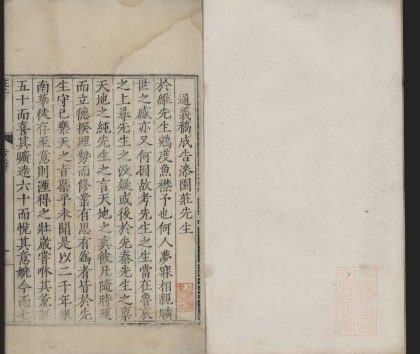 通義稿成告漆園莊先生
於維先生鵷度魚襟予也何人夢寐相親曠
世之感亦又何因故考先生之生當在魯哀
之上尋先生之没疑或後於先秦先生之稟
天地之純先生之言天地之真彼凡隨時運
而立德揆理勢而修業有思有為者皆於先
生守己樂天之音槩乎未聞是以二千年來
南華徒存至意則湮得之壯歲嘗咻其荒
五十而喜其曠達六十而悅其玄婉今而七